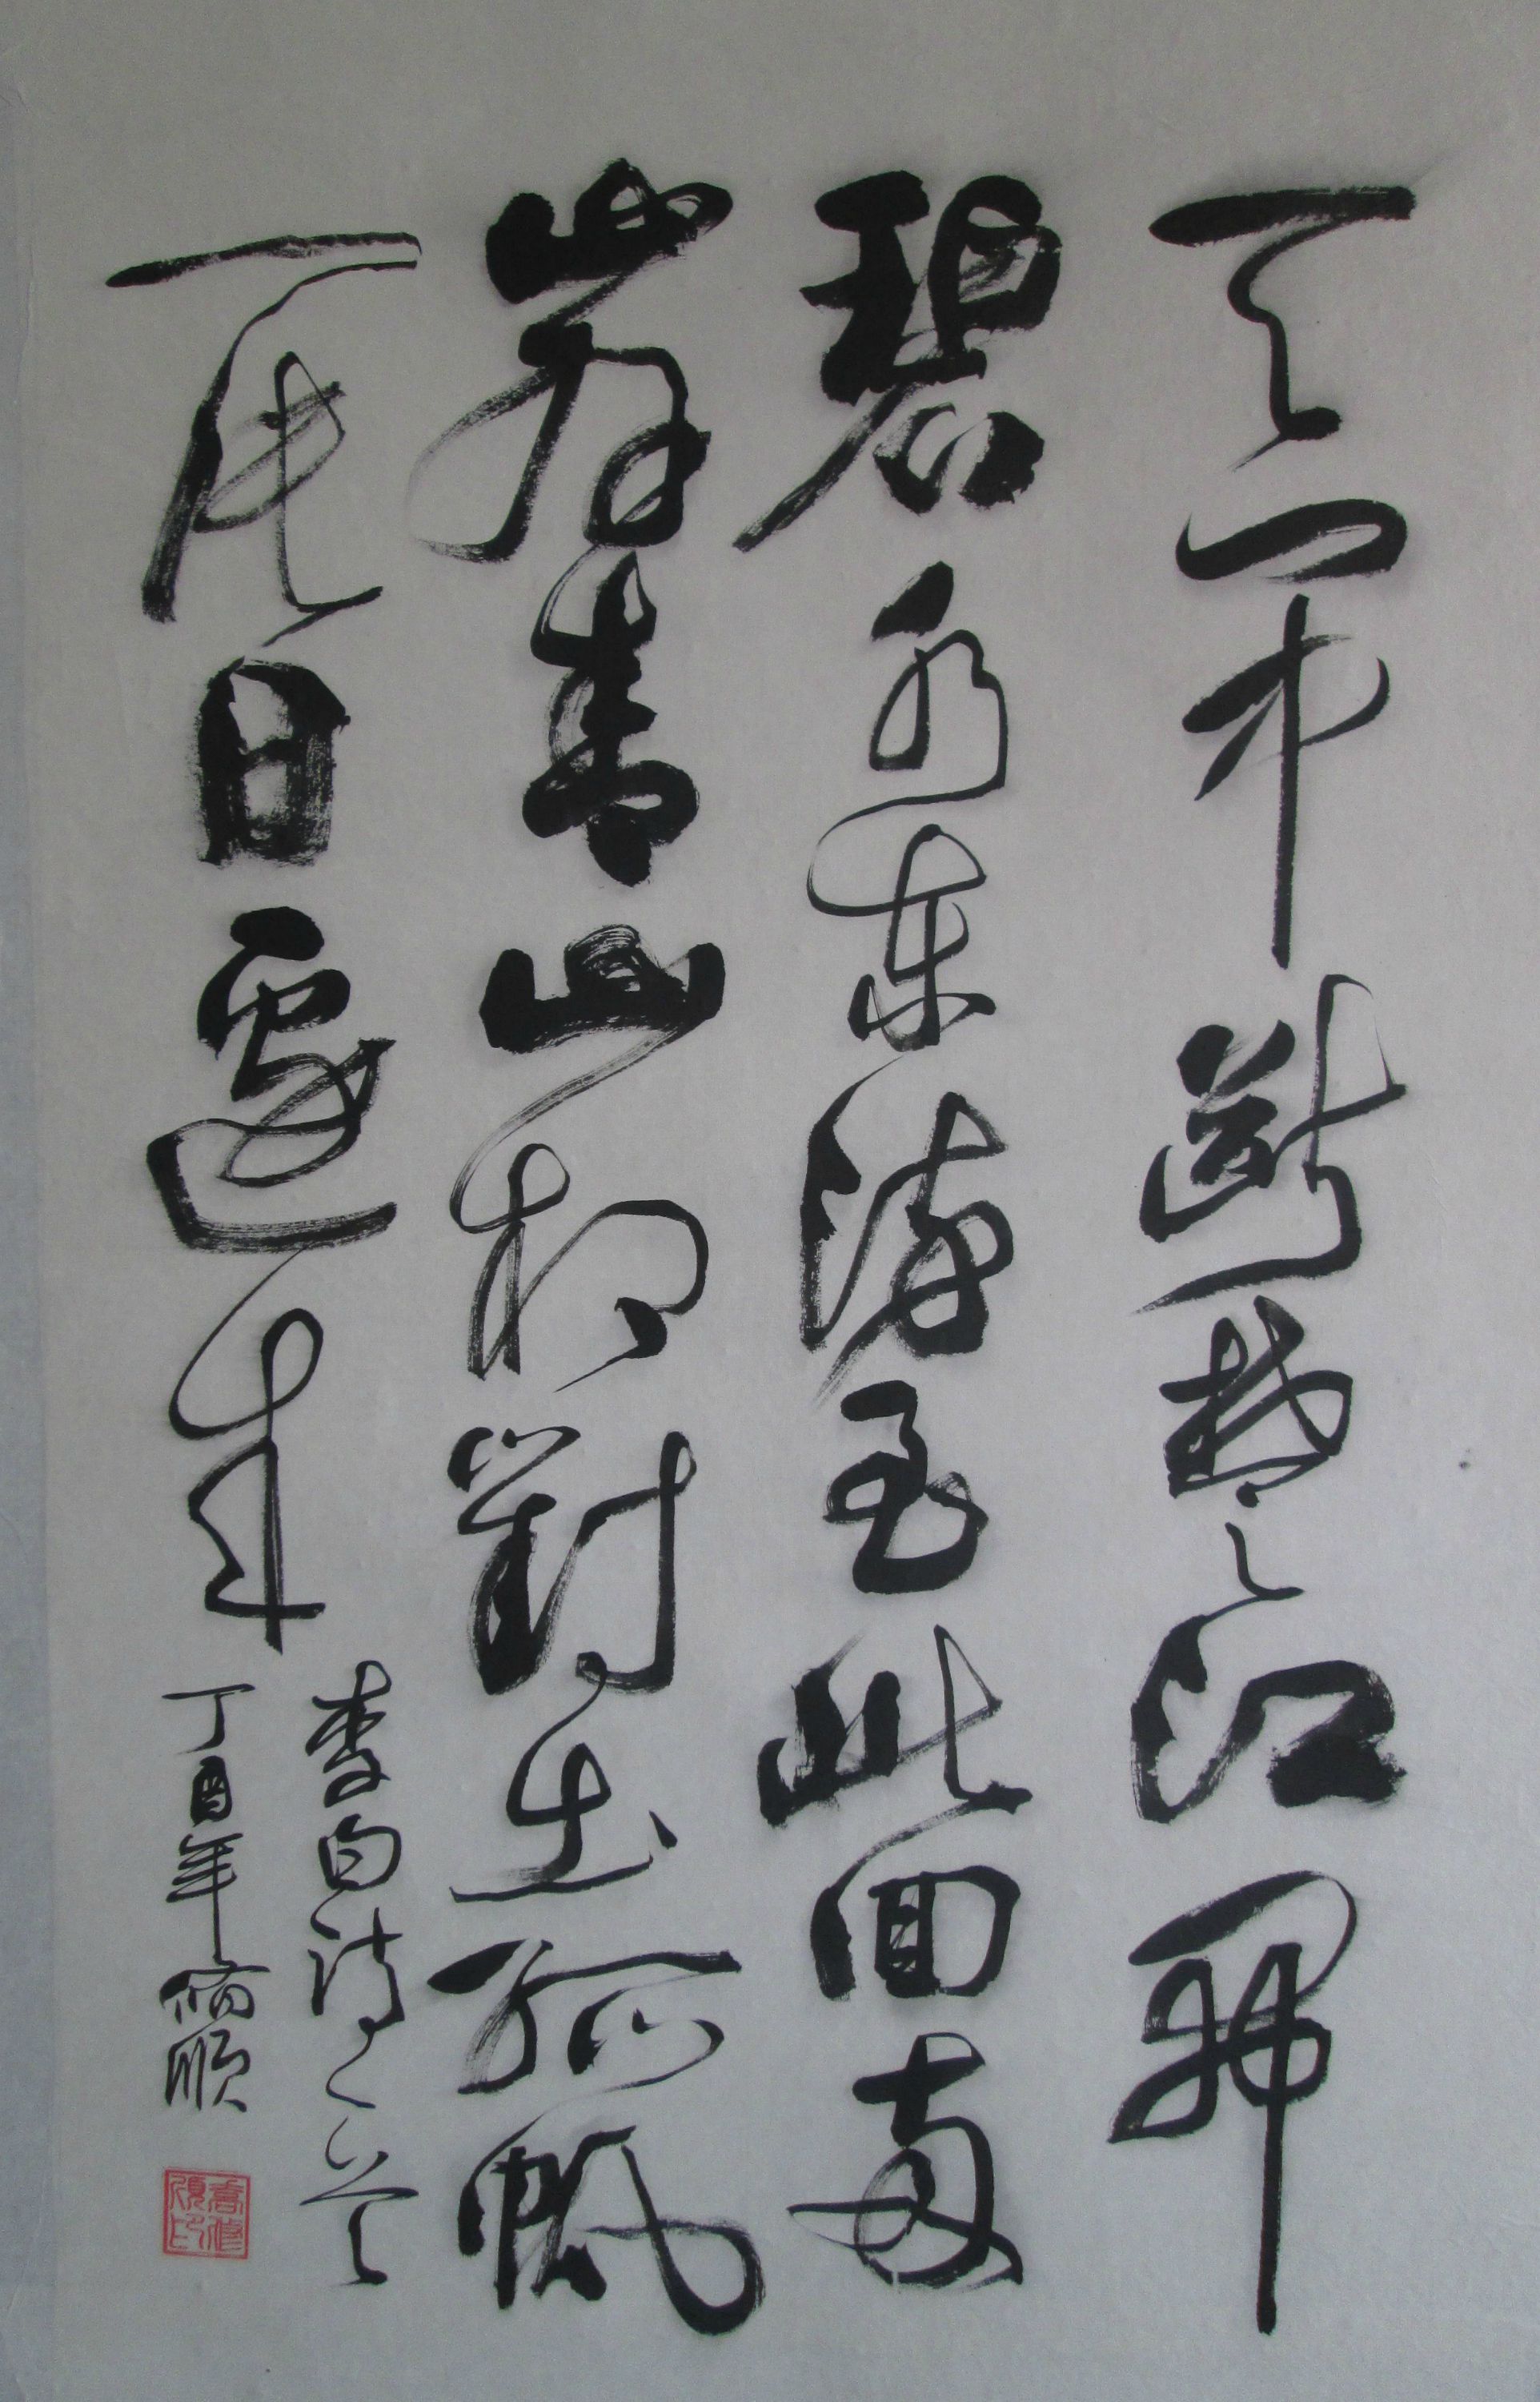 天門中斷楚江開
碧水東流至此回兩
岸青山相對出孤帆
一片日邊來
李白詩一首
丁酉年修順